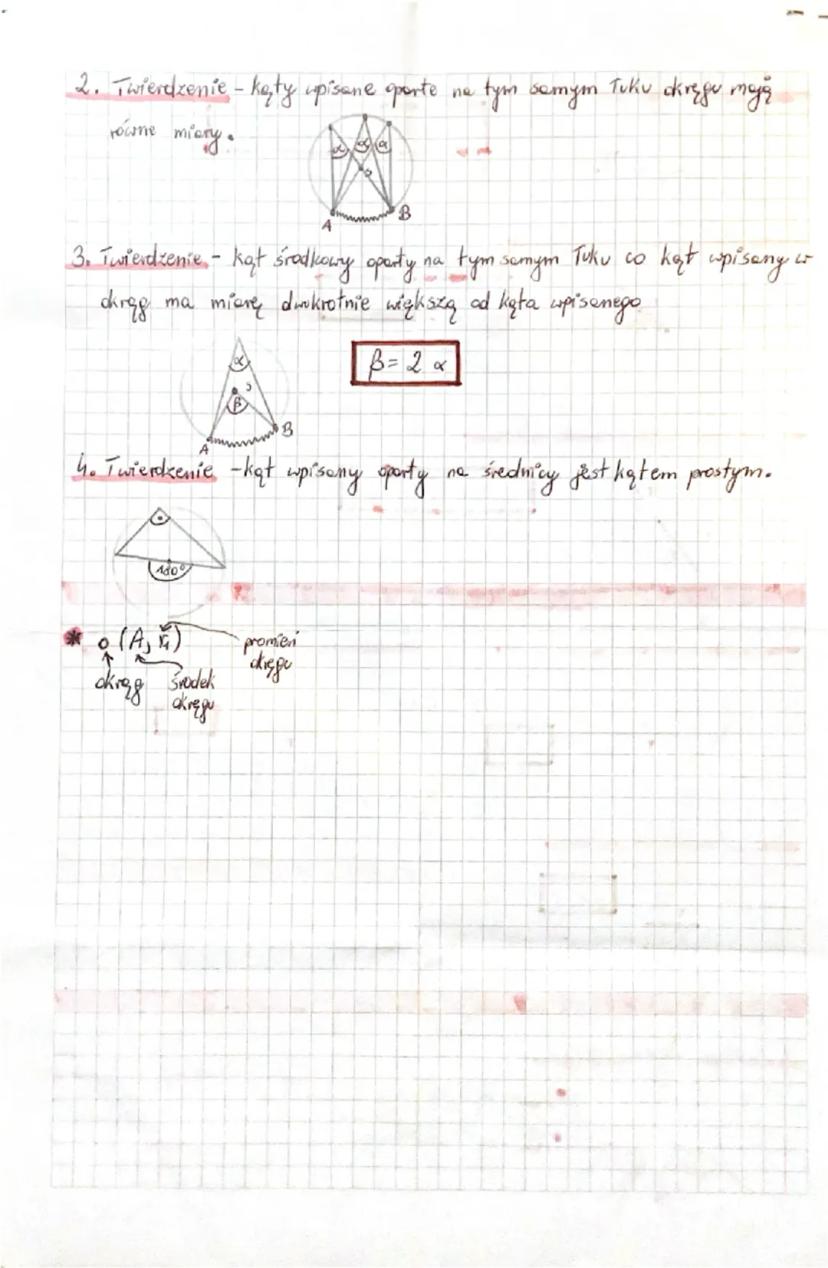 2. Twierdzenie - kąty wpisane oparte na tym samym łuku okręgu mają
równe miary.
α α α
A B
3. Twierdzenie - kąt środkowy oparty na tym samym łuku co kąt wpisany w
okrąg ma miarę dwukrotnie większą od kąta wpisanego
α
β = 2 α
β
A B
4. Twierdzenie - kąt wpisany oparty na średnicy jest kątem prostym.
180°
* o (A, r₁) promień
okręgu
okrąg środek
okręgu